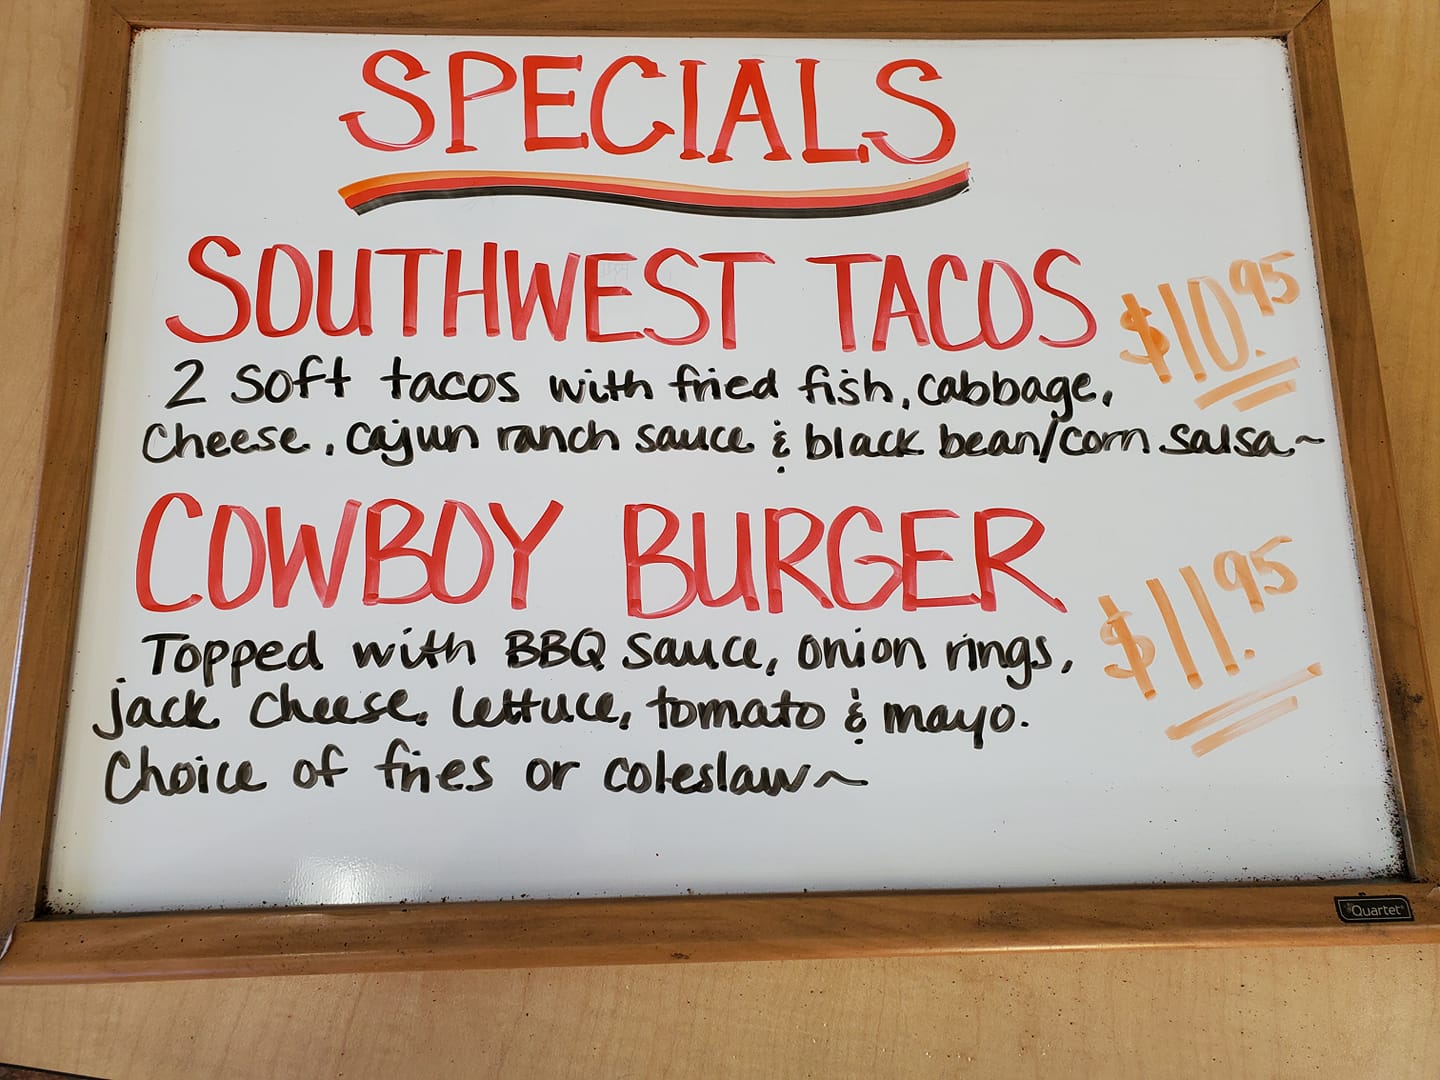 SPECIALS
SOUTHWEST TACOS $10.95
2 Soft tacos with fried fish, cabbage,
Cheese, Cajun ranch sauce & black bean/corn Salsa~
COWBOY BURGER $11.95
Topped with BBQ Sauce, onion rings,
jack Cheese, lettuce, tomato & mayo.
Choice of fries or coleslaw~
Quartet